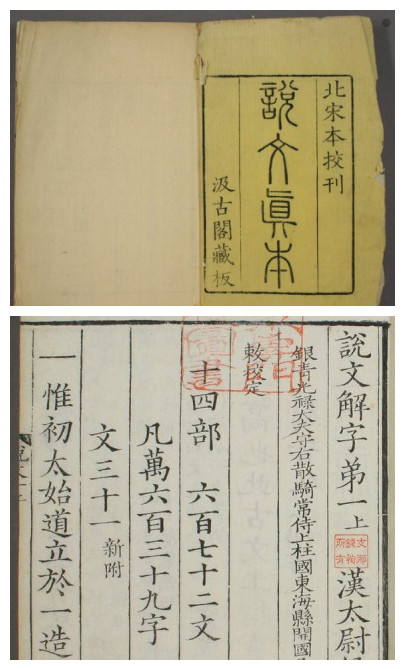 北宋本校刊
說文真本
汲古閣藏板
說文解字弟一上 漢太尉
銀青光祿大夫守右散騎常侍上柱國東海縣開國
敕校定
十四部 六百七十二文
凡萬六百三十九字
文三十一新附
一 惟初太始道立於一造